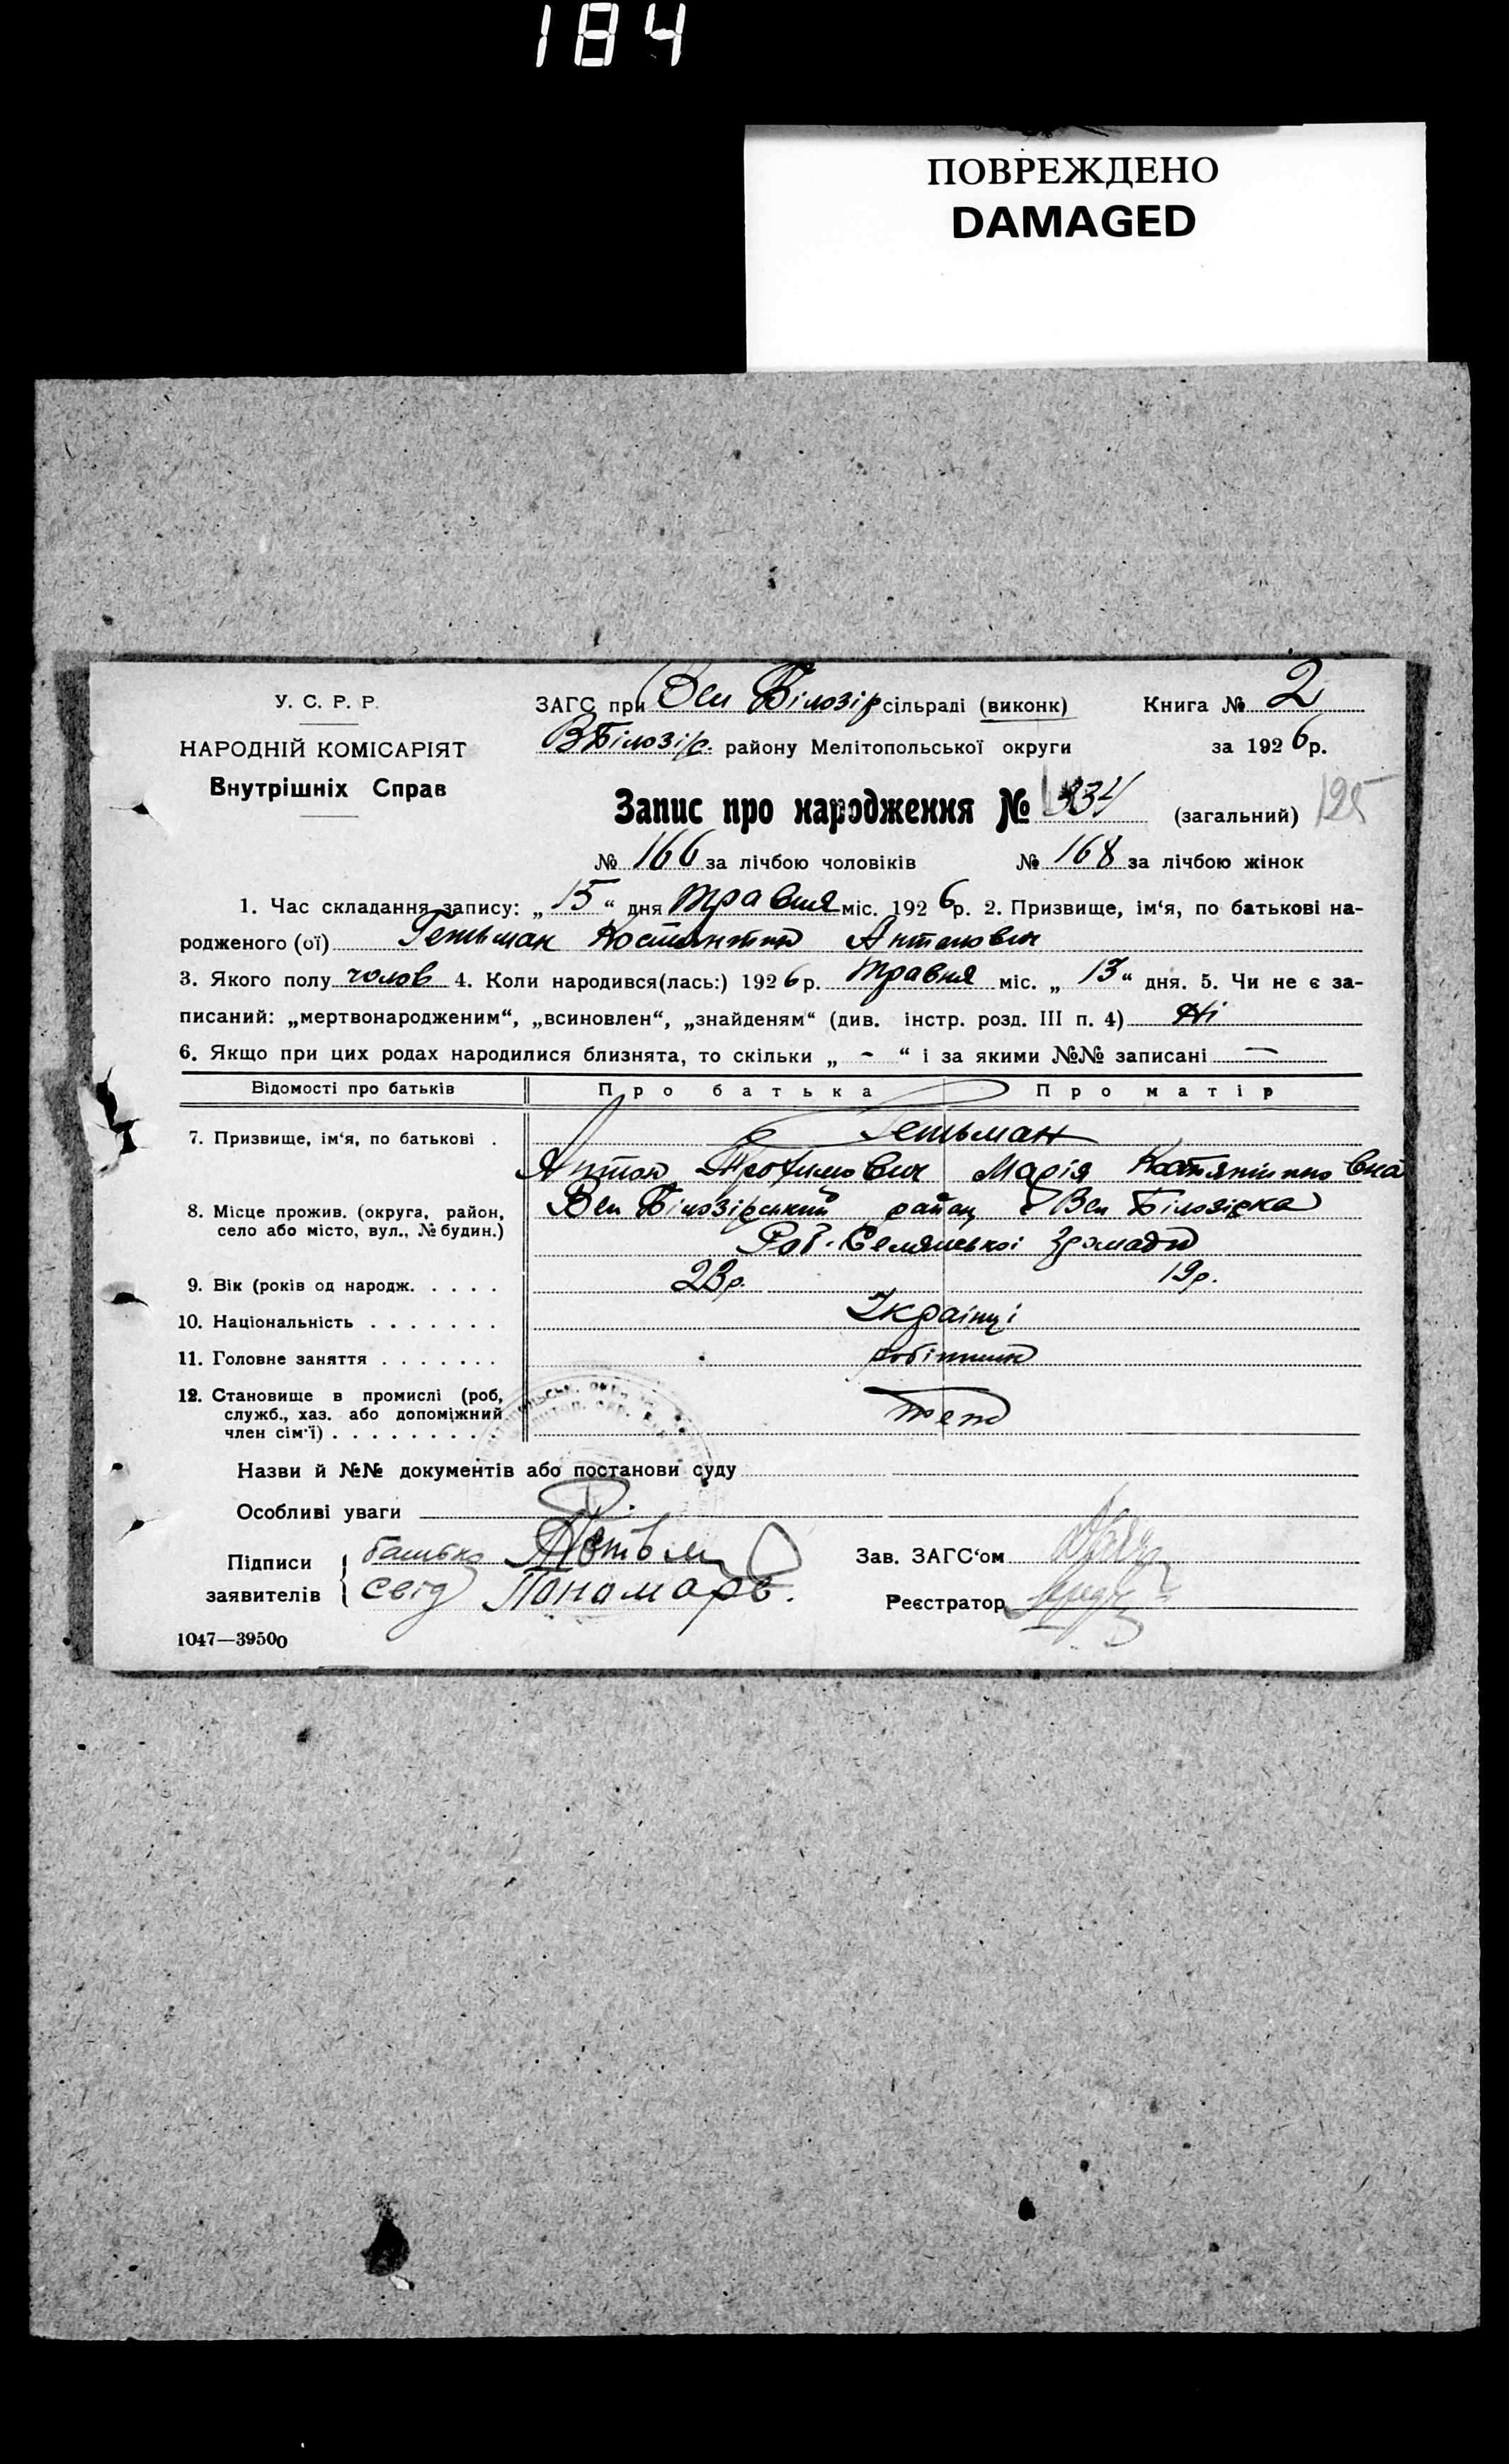 184
ПОВРЕЖДЕНО
DAMAGED
У. С. Р. Р.
НАРОДНІЙ КОМІСАРІЯТ
Внутрішніх Справ
ЗАГС при Вел Білозір сільраді (виконк) Книга № 2
ВБілозір. району Мелітопольської округи за 1926 р.
Запис про народження № 334 (загальний) 125
№ 166 за лічбою чоловіків № 168 за лічбою жінок
1. Час складання запису: „15“ дня травня міс. 1926 р. 2. Призвище, ім‘я, по батькові на-
родженого (ої) Гетьман Костянтин Антонович
3. Якого полу чолов 4. Коли народився(лась:) 1926 р. травня міс. „13“ дня. 5. Чи не є за-
писаний: „мертвонародженим“, „всиновлен“, „знайденям“ (див. інстр. розд. III п. 4) Ні
6. Якщо при цих родах народилися близнята, то скільки „ - “ і за якими №№ записані —
Відомості про батьків Про батька Про матір
7. Призвище, ім‘я, по батькові . Гетьман
Антон Трофимович Марія Костянтиновна
8. Місце прожив. (округа, район, село або місто, вул., № будин.) Вел Білозірський район Вел Білозірка
громади
9. Вік (років од народж. . . . . 23 р. 19 р.
10. Національність . . . . . . . Українці
11. Головне заняття . . . . . . . робітник
12. Становище в промислі (роб,
служб., хаз. або допоміжний
член сім‘ї) . . . . . . . .
Назви й №№ документів або постанови суду
Особливі уваги
Підписи заявителів батько
свід Пономарь.
Зав. ЗАГС‘ом
Реєстратор
1047—39500